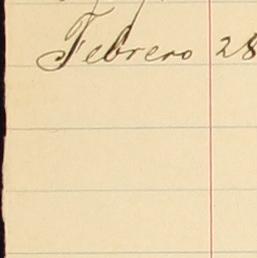 Febrero 28